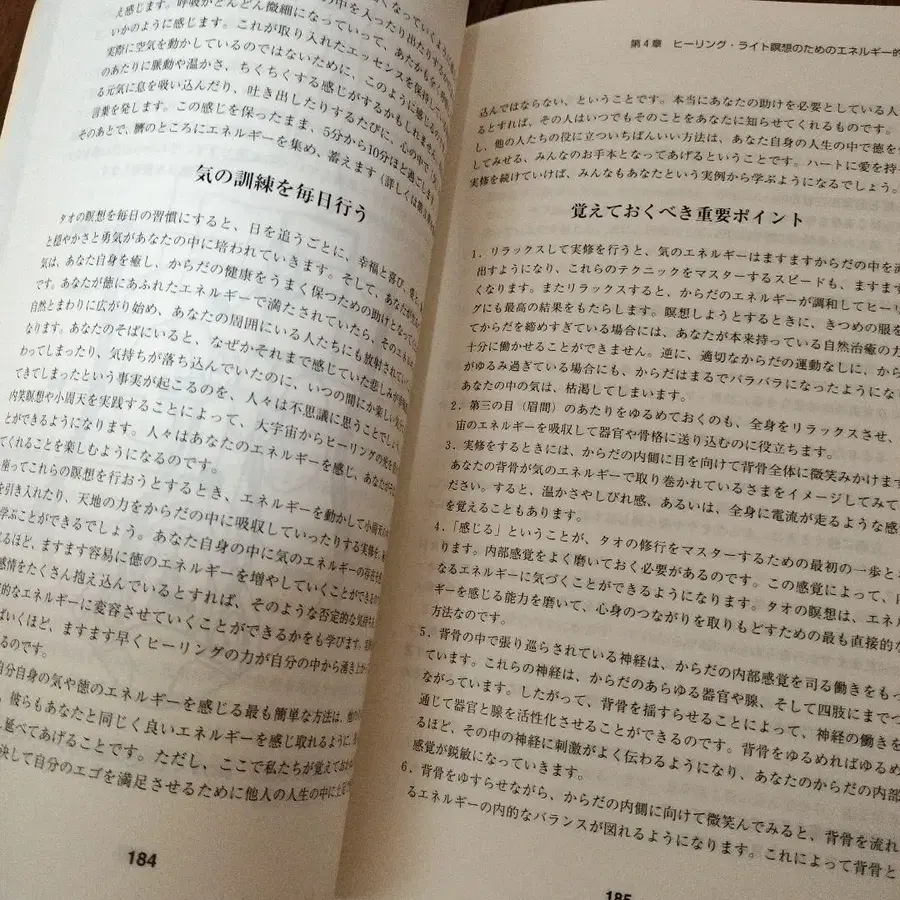 え感じます。呼吸がどんどん微細になっていって、あたかも
いかのように感じます。これが取り入れたエッセンスを保持し
実際に空気を動かしているのではないために、このように感じるの
のあたりに脈動や温かさ、ちくちくする感じがするかもしれませ
る元気に息を吸い込んだり、吐き出したりするたびに、心の中で
言葉を発します。この感じを保ったまま、5分から10分ほど過ごします。
そのあとで、臍のところにエネルギーを集め、蓄えます（詳しくは
気の訓練を毎日行う
タオの瞑想を毎日の習慣にすると、日を追うごとに、幸福と喜び、愛と
と穏やかさと勇気があなたの中に培われていきます。そして、あなたが
気は、あなた自身を癒し、からだの健康をうまく保つための助けとなって
です。あなたが徳にあふれたエネルギーで満たされていたら、そのエネル
自然とまわりに広がり始め、あなたの周囲にいる人たちにも放射されてい
なります。あなたのそばにいると、なぜかそれまで感じていた悲しみや
わってしまったり、気持ちが落ち込んでいたのに、いつの間にか楽しい
てきてしまったという事実が起こるのを、人々は不思議に思うことでしょ
内笑瞑想や小周天を実践することによって、大宇宙からヒーリングの光を
とができるようになります。人々はあなたのエネルギーを感じ、あなたが
てくれることを楽しむようになるのです。
座ってこれらの瞑想を行おうとするとき、エネルギーを動かして小周天の
を引き入れたり、天地の力をからだの中に吸収していったりする実修を、
学ぶことができるでしょう。あなた自身の中に気のエネルギーの存在を
るほど、ますます容易に徳のエネルギーを増やしていくことができるの
感情をたくさん抱え込んでいるとすれば、そのような否定的な気持ちを
的なエネルギーに変容させていくことができるかをも学びます。
ばいくほど、ますます早くヒーリングの力が自分の中から湧き上が
るのです。
自分自身の気や徳のエネルギーを感じる最も簡単な方法は、他の
、彼らもあなたと同じく良いエネルギーを感じ取れるように、
し延べてあげることです。ただし、ここで私たちが覚えておか
決して自分のエゴを満足させるために他人の人生の中に
184
第4章　ヒーリング・ライト瞑想のためのエネルギー的
込んではならない、ということです。本当にあなたの助けを必要としている人
るとすれば、その人はいつでもそのことをあなたに知らせてくれるものです。
し、他の人たちの役に立ついちばんいい方法は、あなた自身の人生の中で徳を
してみせる、みんなのお手本となってあげるということです。ハートに愛を持
実修を続けていけば、みんなもあなたという実例から学ぶようになるでしょう。
覚えておくべき重要ポイント
1．リラックスして実修を行うと、気のエネルギーはますますからだの中を
出すようになり、これらのテクニックをマスターするスピードも、ますます
くなります。またリラックスすると、からだのエネルギーが調和してヒーリ
グにも最高の結果をもたらします。瞑想しようとするときに、きつめの服を
てからだを締めすぎている場合には、あなたが本来持っている自然治癒の力
十分に働かせることができません。逆に、適切なからだの運動なしに、から
がゆるみ過ぎている場合にも、からだはまるでバラバラになったようにな
あなたの中の気は、枯渇してしまいます。
2．第三の目（眉間）のあたりをゆるめておくのも、全身をリラックスさせ、
宙のエネルギーを吸収して器官や骨格に送り込むのに役立ちます。
3．実修をするときには、からだの内側に目を向けて背骨全体に微笑みかけます
あなたの背骨が気のエネルギーで取り巻かれているさまをイメージしてみて
ださい。すると、温かさやしびれ感、あるいは、全身に電流が走るような感
を覚えることもあります。
4．「感じる」ということが、タオの修行をマスターするための最初の一歩と
ります。内部感覚をよく磨いておく必要があるのです。この感覚によって、
なるエネルギーに気づくことができるようになります。タオの瞑想は、エネル
ギーを感じる能力を磨いて、心身のつながりを取りもどすための最も直接的な
方法なのです。
5．背骨の中で張り巡らされている神経は、からだの内部感覚を司る働きをもっ
ています。これらの神経は、からだのあらゆる器官や腺、そして四肢にまでつ
ながっています。したがって、背骨を揺すらせることによって、神経の働きを
通じて器官と腺を活性化させることができるのです。背骨をゆるめればゆるめ
るほど、その中の神経に刺激がよく伝わるようになり、あなたのからだの内部
感覚が鋭敏になっていきます。
6．背骨をゆすらせながら、からだの内側に向けて微笑んでみると、背骨を流れ
るエネルギーの内的なバランスが図れるようになります。これによって背骨と
185